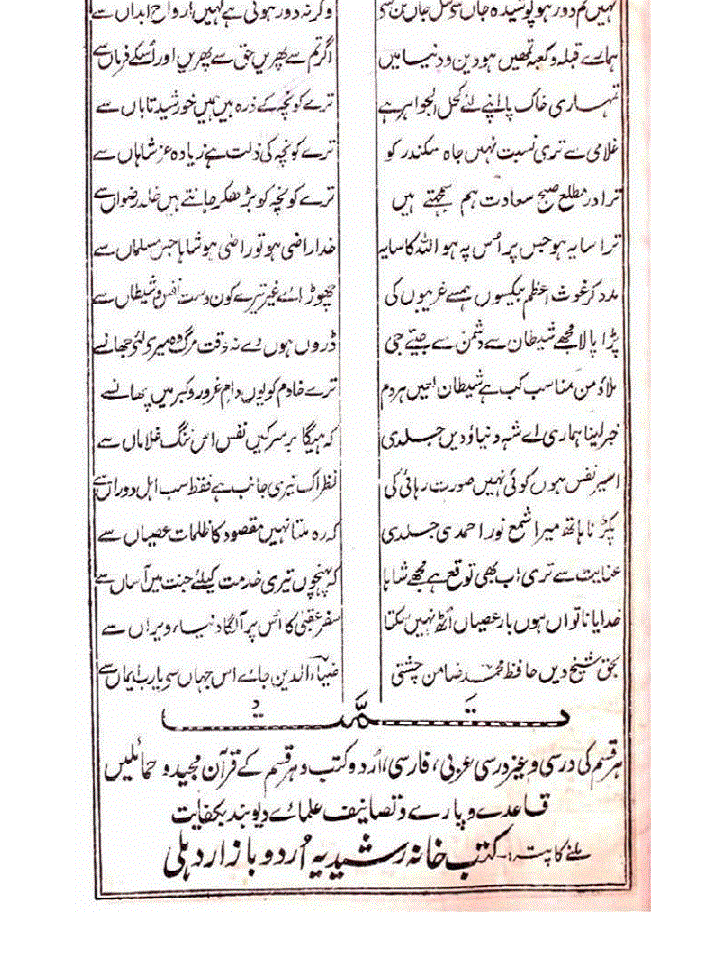 نہیں تم دور ہو پوشیدہ جاں سے مثل جاں بن سے وگرنہ دور ہوتی ہے نہیں ارواح ابداں سے
ہمارے قبلہ و کعبہ تمھیں ہو دین و دنیا میں اگر تم سے پھریں حق سے پھریں اور اُسکے فرماں سے
تمہاری خاک پا اپنے لئے کحل الجواہر ہے ترے کوچہ کے ذرہ ہیں ہمیں خورشید تاباں سے
غلامی سے تری نسبت نہیں جاہ سکندر کو ترے کوچہ کی ذلت ہے زیادہ عز شاہاں سے
ترا در مطلع صبح سعادت ہم سمجھتے ہیں ترے کوچہ کو بڑھکر جانتے ہیں خلد رضواں سے
ترا سایہ ہو جس پر اُس پہ ہو اللہ کا سایہ خدا راضی ہو تو راضی ہو شاہا جس مسلماں سے
مدد کر غوث اعظم بیکسوں ہمسے غریبوں کی چھوڑائے غیر تیرے کون دست نفس و شیطاں سے
پڑا پالا مجھے شیطان سے دشمن سے جیتے جی ڈروں ہوں دے نہ وقت مرگ وہ میری لئی جھانسے
ملاؤ من مناسب کب ہے شیطان لعیں ہر دم ترے خادم کو یوں دام غرور و کبر میں پھانسے
خبر لینا ہماری اے شہ دنیا و دیں جلدی کہ ہیگا برسرکیں نفس اس ننگ غلاماں سے
اسیر نفس ہوں کوئی نہیں صورت رہائی کی نظر اک تیری جانب ہے فقط سب اہل دوراں سے
پکڑنا ہاتھ میرا شمع نور احمدی جلدی کہ رہ ملتا نہیں مقصود کا ظلمات عصیاں سے
عنایت سے تری اب بھی توقع ہے مجھے شاہا کہ پہنچوں تیری خدمت کیلئے جنت میں آساں سے
خدایا ناتواں ہوں بار عصیاں اٹھ نہیں سکتا سفر عقبیٰ کا اس پر آلگا دنیاء ویراں سے
بحق شیخ دیں حافظ محمد ضامن چشتی ضیاء الدین جائے اس جہاں سے یارب ایماں سے
تمت
ہر قسم کی درسی و غیر درسی عربی، فارسی، اُردو کتب و ہر قسم کے قرآن مجید و حمائلیں
قاعدے و پارے و تصانیف علمائے دیوبند بکفایت
ملنے کا پتہ:- کتب خانہ رشیدیہ اُردو بازار دہلی